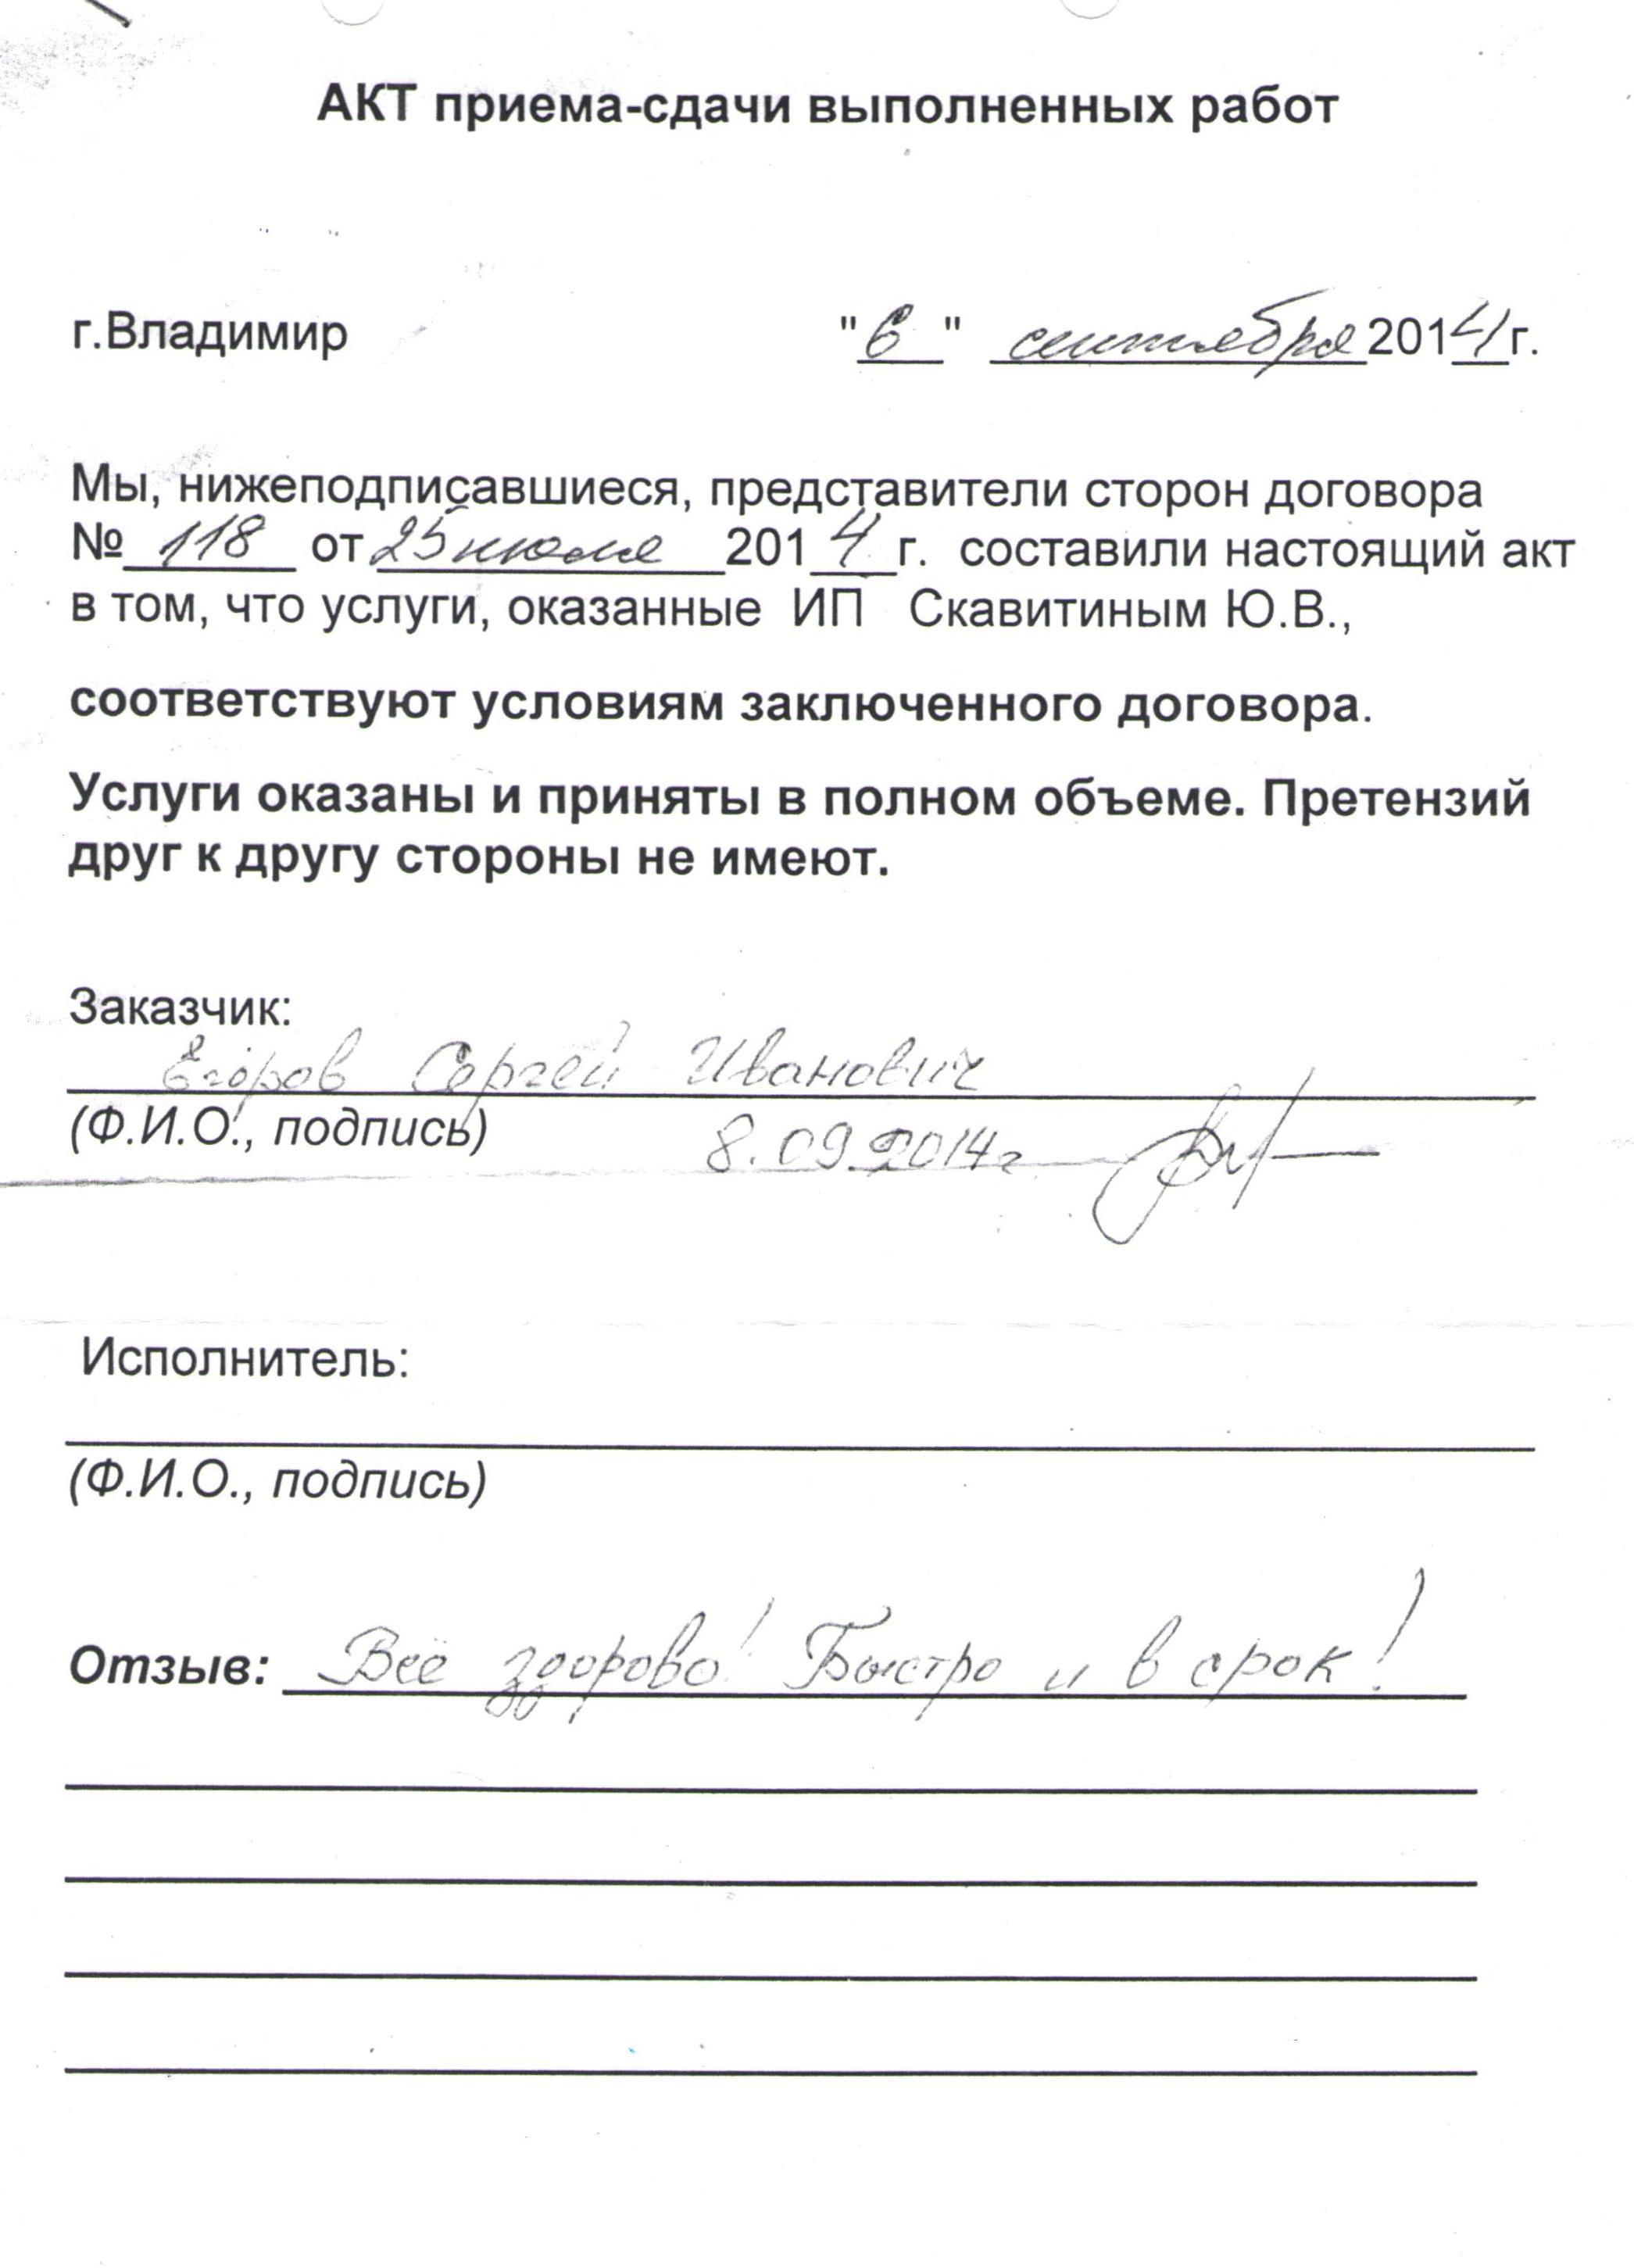 АКТ приема-сдачи выполненных работ
г.Владимир "6" сентября 2014 г.
Мы, нижеподписавшиеся, представители сторон договора
№ 118 от 25 июля 2014 г. составили настоящий акт
в том, что услуги, оказанные ИП Скавитиным Ю.В.,
соответствуют условиям заключенного договора.
Услуги оказаны и приняты в полном объеме. Претензий
друг к другу стороны не имеют.
Заказчик:
Егоров Сергей Иванович
(Ф.И.О., подпись) 8.09.2014г
Исполнитель:
(Ф.И.О., подпись)
Отзыв: Всё здорово! Быстро и в срок!